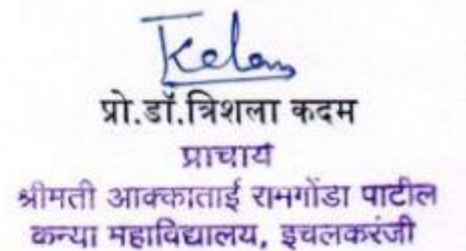 प्रो.डॉ.त्रिशला कदम
प्राचार्य
श्रीमती आक्काताई रामगोंडा पाटील
कन्या महाविद्यालय, इचलकरंजी